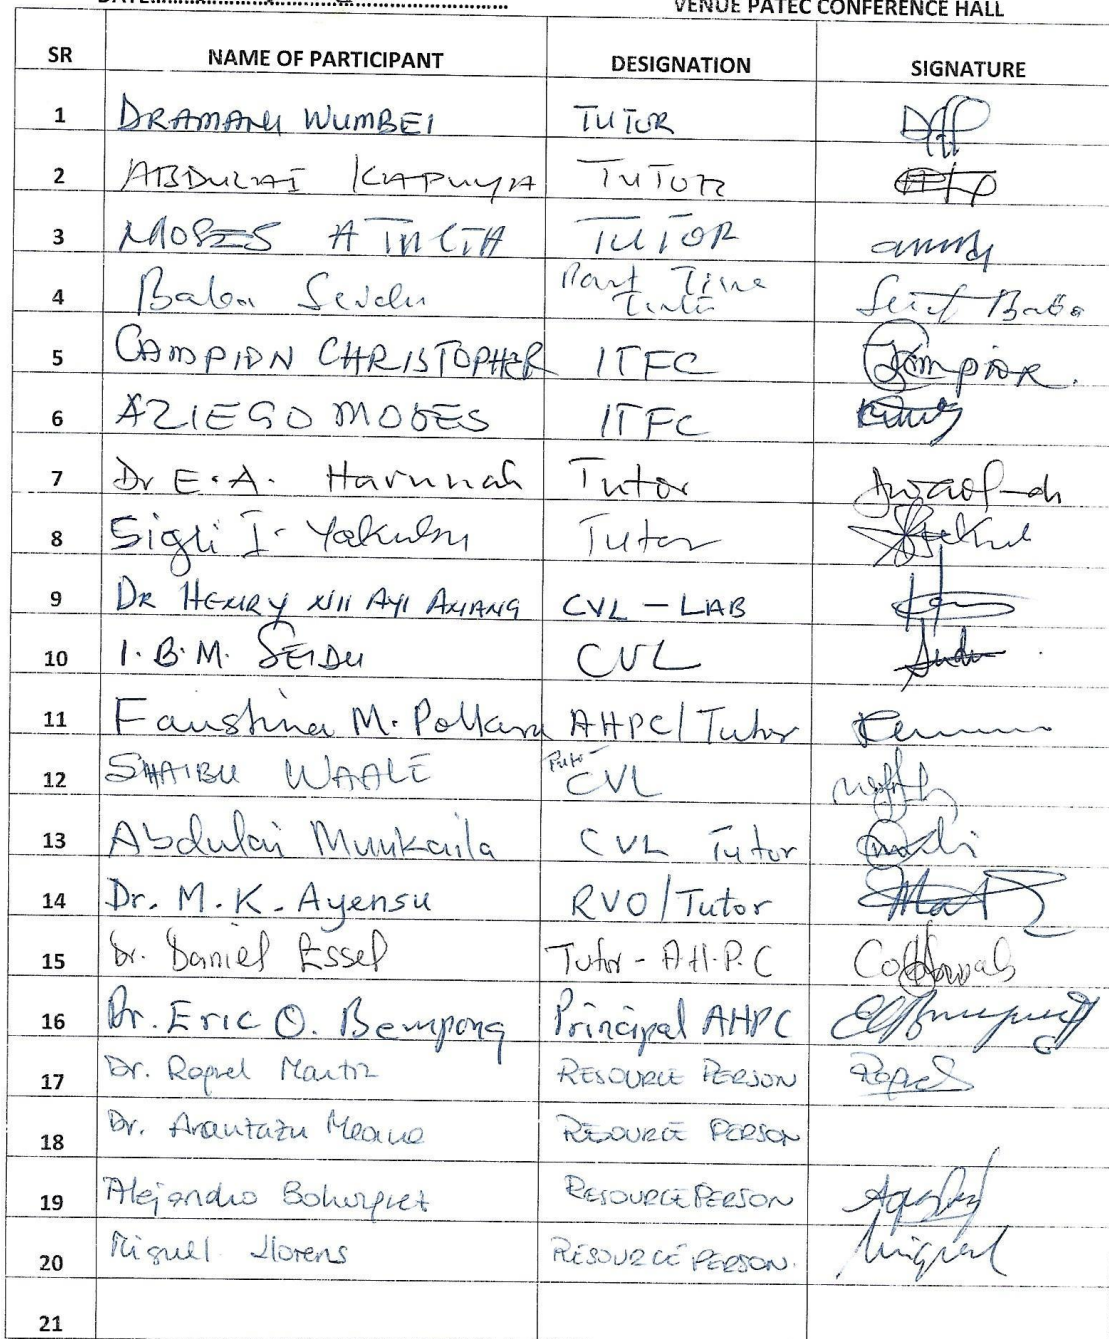 DATE VENUE PATEC CONFERENCE HALL
SR NAME OF PARTICIPANT DESIGNATION SIGNATURE
1 DRAMANI WUMBEI TUTOR
2 ABDULAI KAPUYA TUTOR
3 MOSES TUTOR
4 Baba Seidu Part Time Tutor Seid Baba
5 CAMPION CHRISTOPHER ITFC Campion
6 AZIEGO MOSES ITFC
7 Dr E.A. Harunah Tutor
8 Sigli I. Yakubu Tutor
9 DR HENRY XIII AYI ANANG CVL - LAB
10 I.B.M. SEIDU CVL
11 Faustina M. AHPC/Tutor
12 SHAIBU WAALE CVL
13 Abdulai Munkaila CVL Tutor
14 Dr. M.K. Ayensu RVO/Tutor
15 Dr. Daniel Essel Tutor - A.H.P.C
16 Dr. Eric O. Bempong Principal AHPC
17 Dr. Raquel RESOURCE PERSON
18 Dr. Arantazu Meana RESOURCE PERSON
19 Alejandro RESOURCE PERSON
20 Miguel Llorens RESOURCE PERSON. Miguel
21